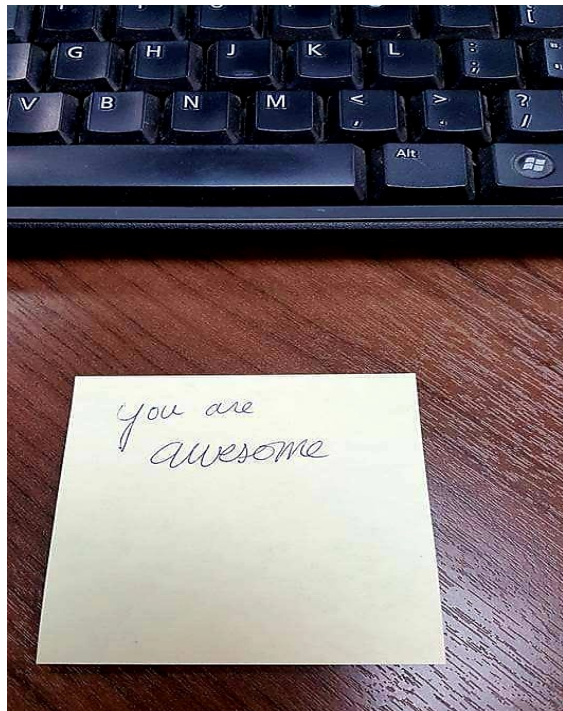 G H J K L : ;
V B N M < , > . ? /
Alt
you are
awesome